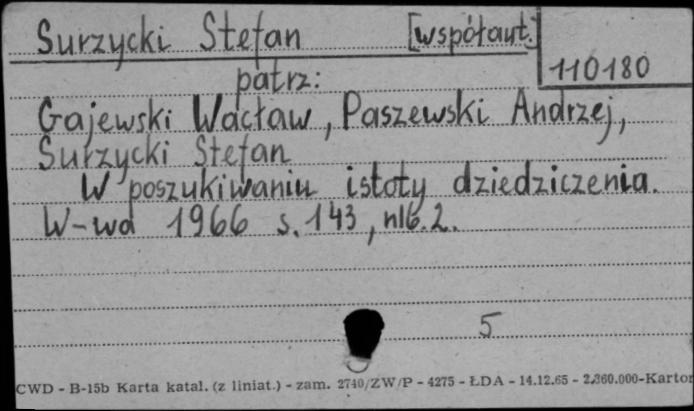 Surzycki Stefan [współaut.]
110180
patrz:
Gajewski Wacław, Paszewski Andrzej,
Surzycki Stefan
W poszukiwaniu istoty dziedziczenia.
W-wa 1966 s. 143, nlb. 2.
5
CWD - B-15b Karta katal. (z liniat.) - zam. 2740/ZW/P - 4275 - ŁDA - 14.12.65 - 2.360.000-Karton